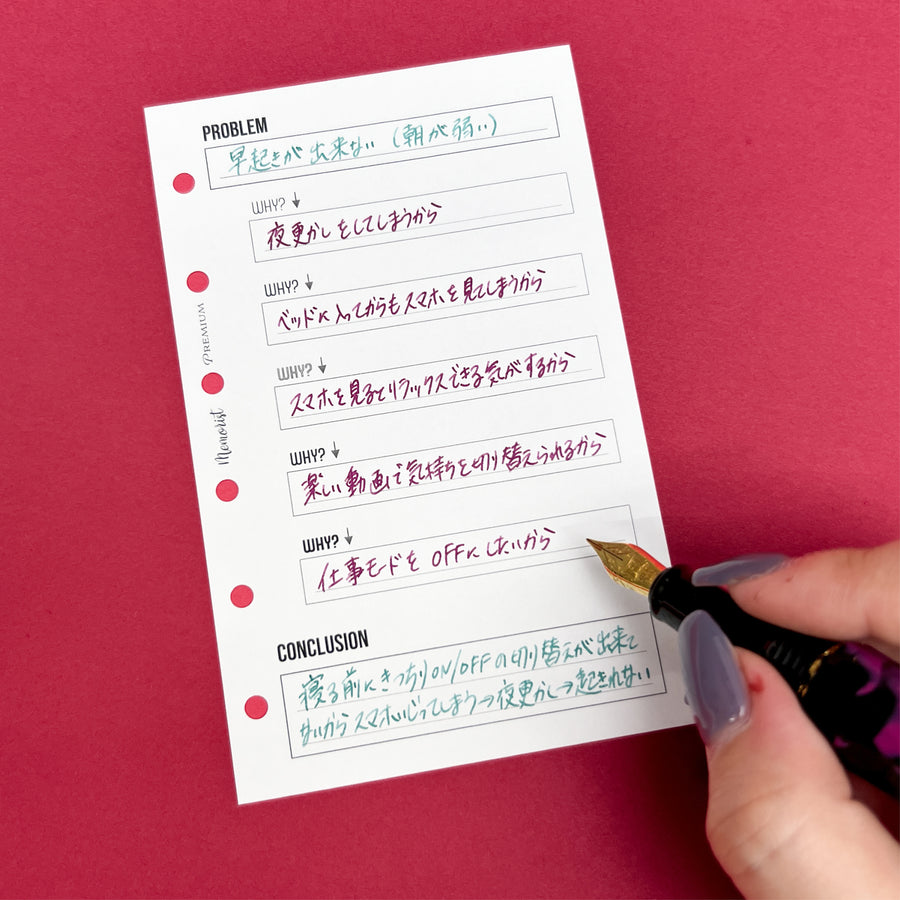 PROBLEM
早起きが出来ない（朝が弱い）
WHY? ↓
夜更かしをしてしまうから
WHY? ↓
ベッドに入ってからもスマホを見てしまうから
WHY? ↓
スマホを見るとリラックスできる気がするから
WHY? ↓
楽しい動画で気持ちを切り替えられるから
WHY? ↓
仕事モードをOFFにしたいから
CONCLUSION
寝る前にきっちりON/OFFの切り替えが出来て
ないからスマホいじってしまう→夜更かし→起きれない
PREMIUM
Memorist